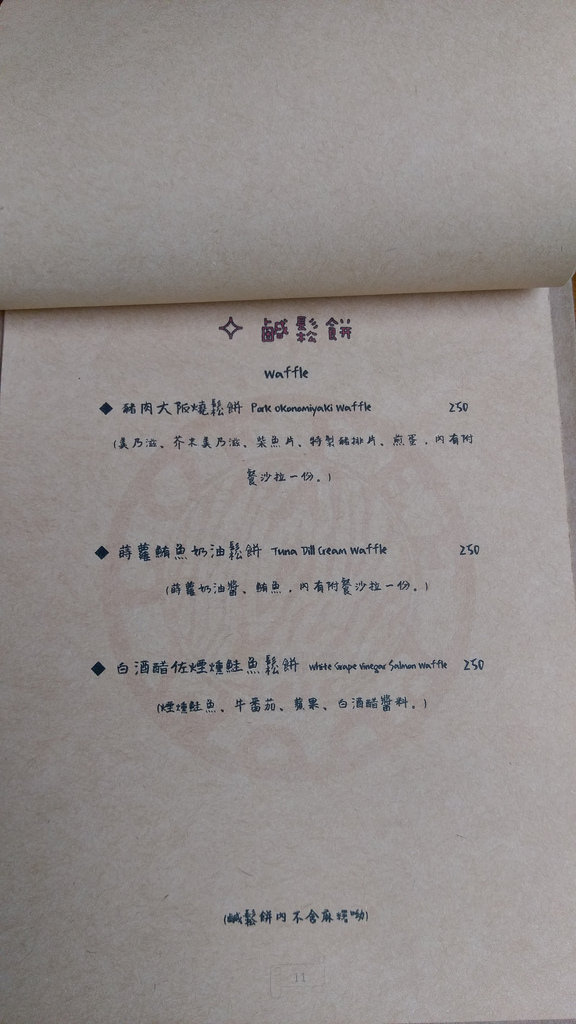 ✧ 鹹鬆餅
Waffle
◆ 豬肉大阪燒鬆餅 Pork Okonomiyaki Waffle 250
(美乃滋、芥末美乃滋、柴魚片、特製豬排片、煎蛋,內有附
餐沙拉一份。)
◆ 蒔蘿鮪魚奶油鬆餅 Tuna Dill Cream Waffle 250
(蒔蘿奶油醬、鮪魚,內有附餐沙拉一份。)
◆ 白酒醋佐煙燻鮭魚鬆餅 White Grape Vinegar Salmon Waffle 250
(煙燻鮭魚、牛番茄、蘋果、白酒醋醬料。)
(鹹鬆餅內不含麻糬呦)
11